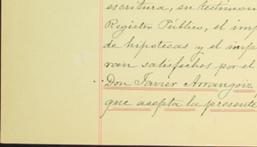 escritura, en testimon
Registro Público, el imp
de hipotecas y el impu
ran satisfechos por el
Don Javier Arrangoiz
que acepta la presente